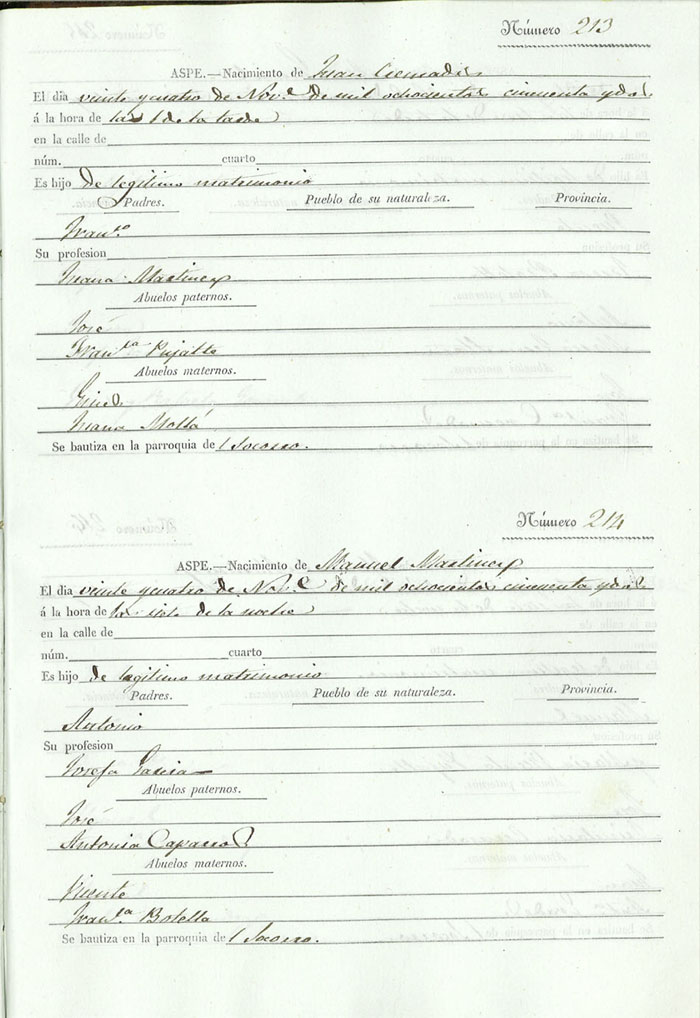 Número 213
ASPE.—Nacimiento de Juan Cremades
El dia veinte y cuatro de Nov.e de mil ochocientos cincuenta y dos
á la hora de las 1 de la tarde
en la calle de
núm. cuarto
Es hijo de legitimo matrimonio
Padres. Pueblo de su naturaleza. Provincia.
Fran.co
Su profesion
Juana Martinez
Abuelos paternos.
José
Fran.ca Pujalte
Abuelos maternos.
Ginés
Juana Mollá
Se bautiza en la parroquia de l Socorro.
Número 214
ASPE.—Nacimiento de Manuel Martinez
El dia veinte y cuatro de Nov.e de mil ochocientos cincuenta y dos
á la hora de de la noche
en la calle de
núm. cuarto
Es hijo de legitimo matrimonio
Padres. Pueblo de su naturaleza. Provincia.
Antonio
Su profesion
Josefa Garcia
Abuelos paternos.
José
Antonia Caparros
Abuelos maternos.
Vicente
Fran.ca Botella
Se bautiza en la parroquia de l Socorro.